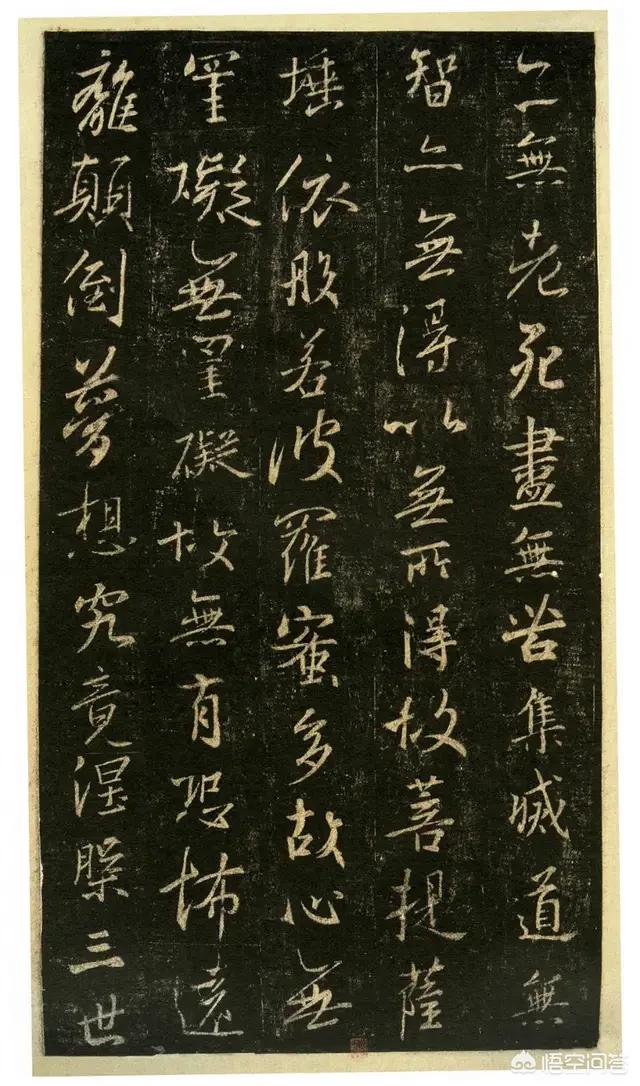 亦無老死盡無苦集滅道無
智亦無得以無所得故菩提薩
埵依般若波羅蜜多故心無
罣礙無罣礙故無有恐怖遠
離顛倒夢想究竟涅槃三世
悟空问答